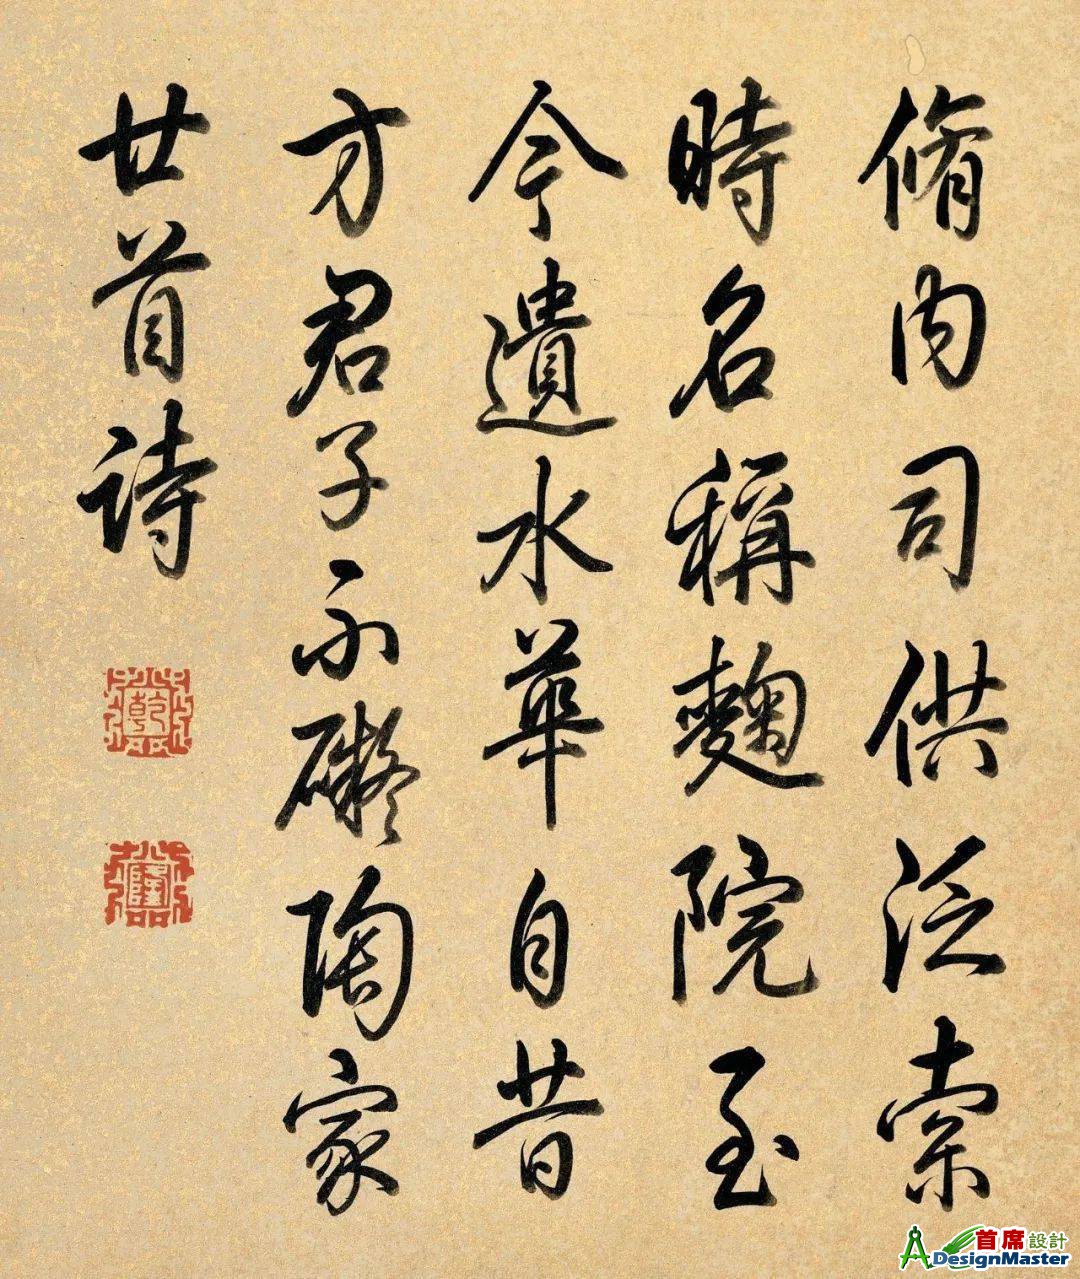 脩内司供泛索
時名稱麴院至
今遺水華自昔
方君子不礙陶家
廿首詩
乾
隆
首席設計
DesignMaster